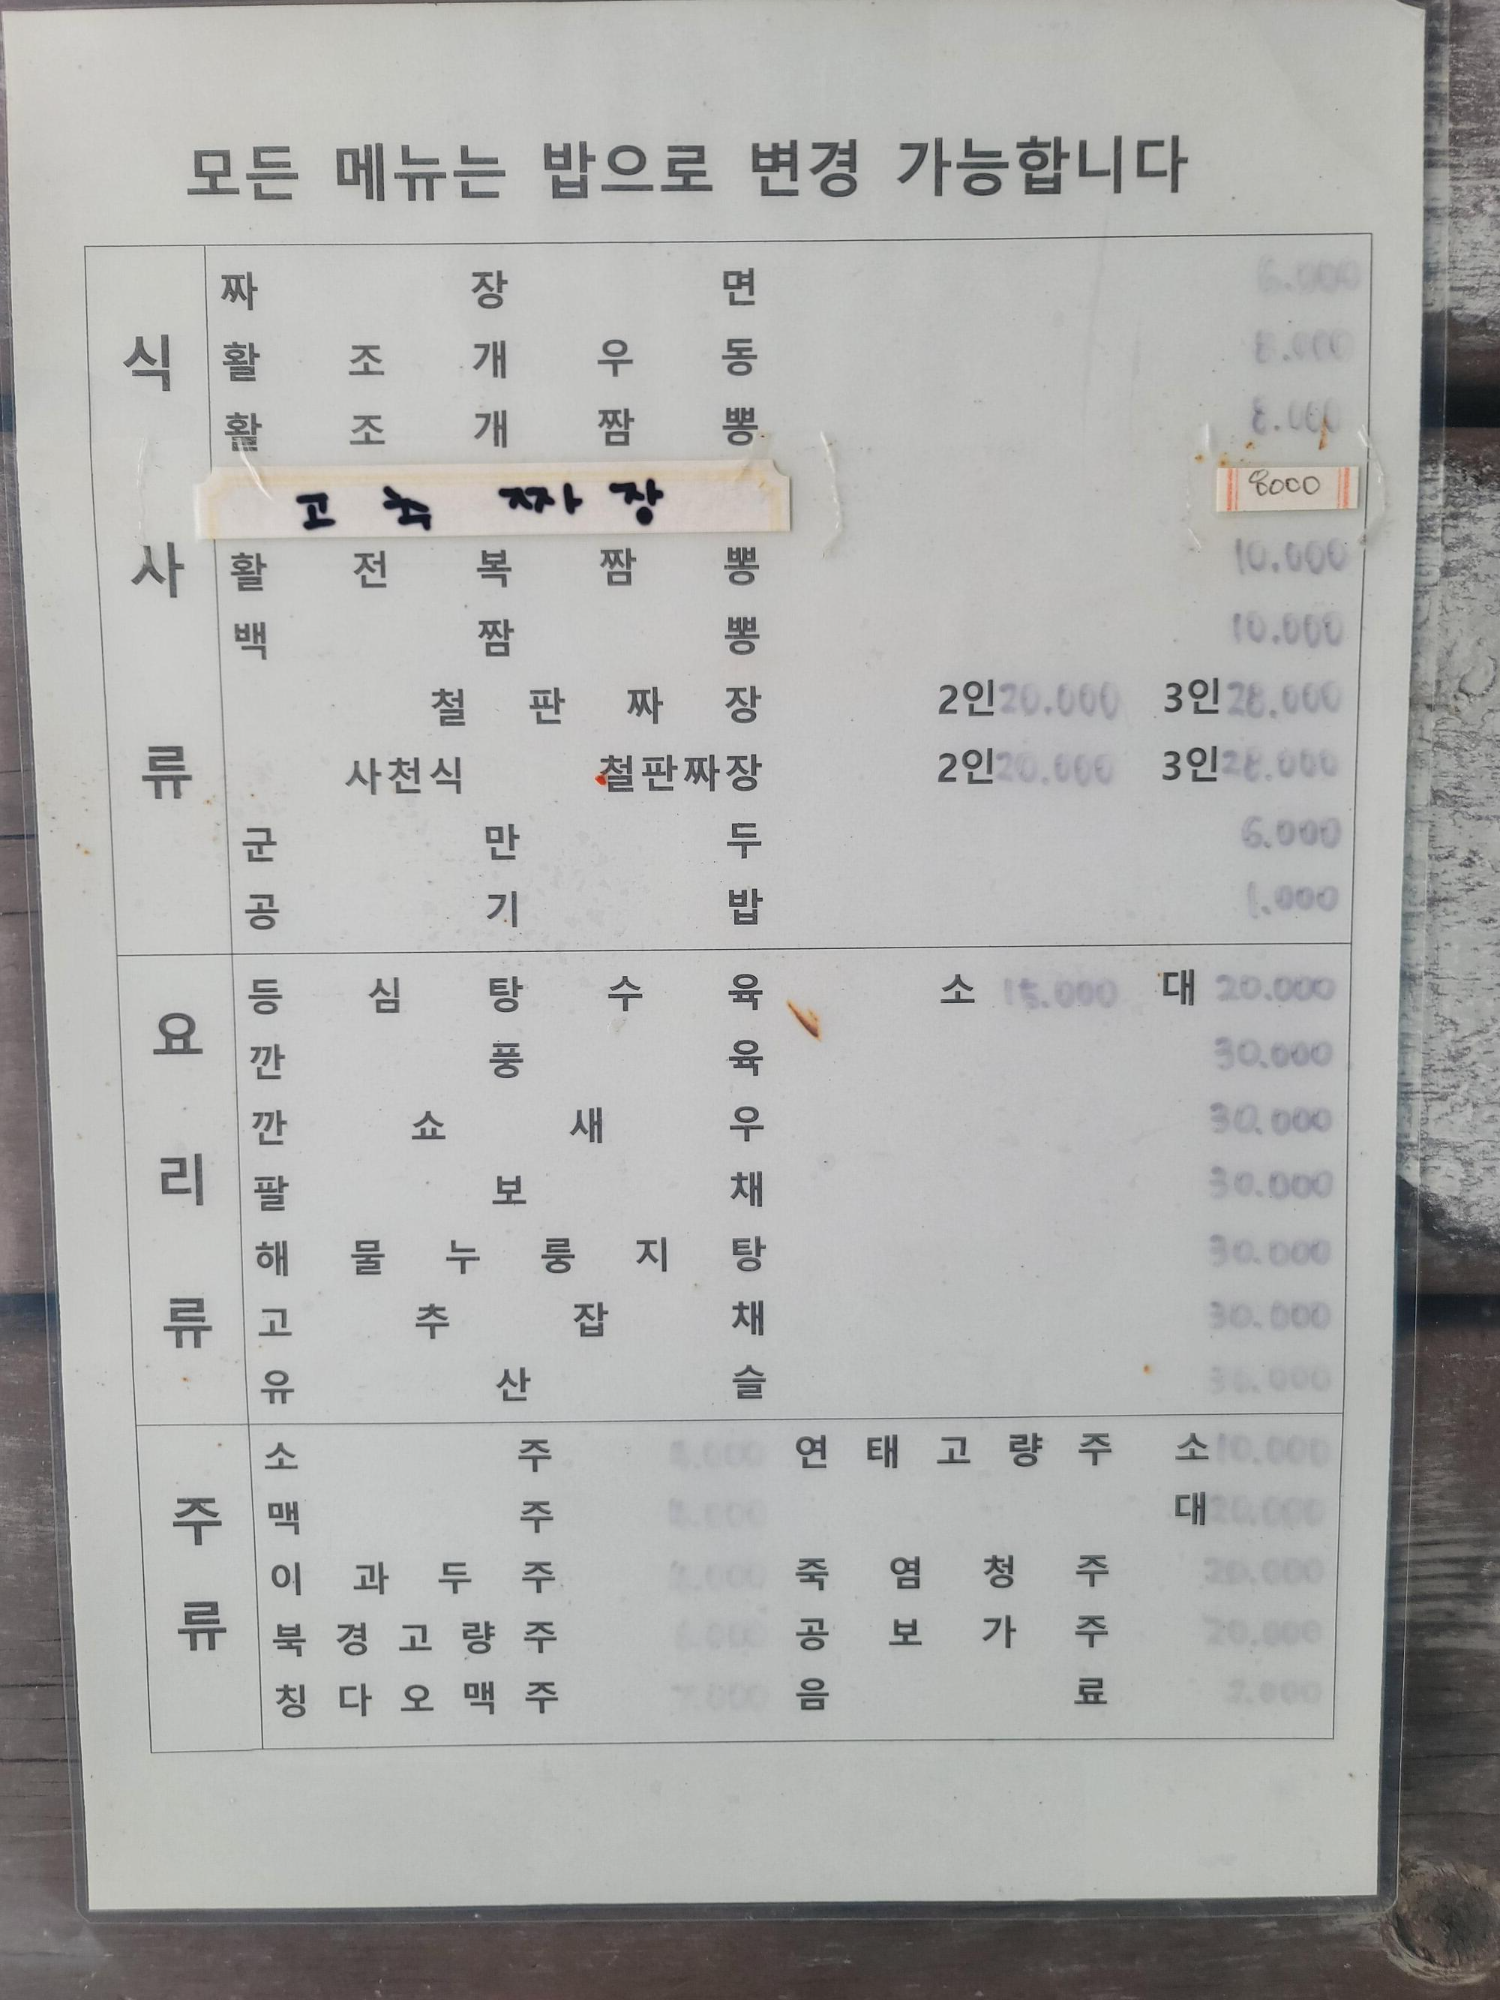 모든 메뉴는 밥으로 변경 가능합니다
식사류
짜장면 6.000
활조개우동 8.000
활조개짬뽕 8.000
고추짜장 8000
활전복짬뽕 10.000
백짬뽕 10.000
철판짜장 2인 20.000 3인 28.000
사천식 철판짜장 2인 20.000 3인 28.000
군만두 6.000
공기밥 1.000
요리류
등심탕수육 소 15.000 대 20.000
깐풍육 30.000
깐쇼새우 30.000
팔보채 30.000
해물누룽지탕 30.000
고추잡채 30.000
유산슬
주류
소주 연태고량주 소 10.000
맥주 대 20.000
이과두주 죽염청주 20.000
북경고량주 공보가주 20.000
칭다오맥주 음료 2.000